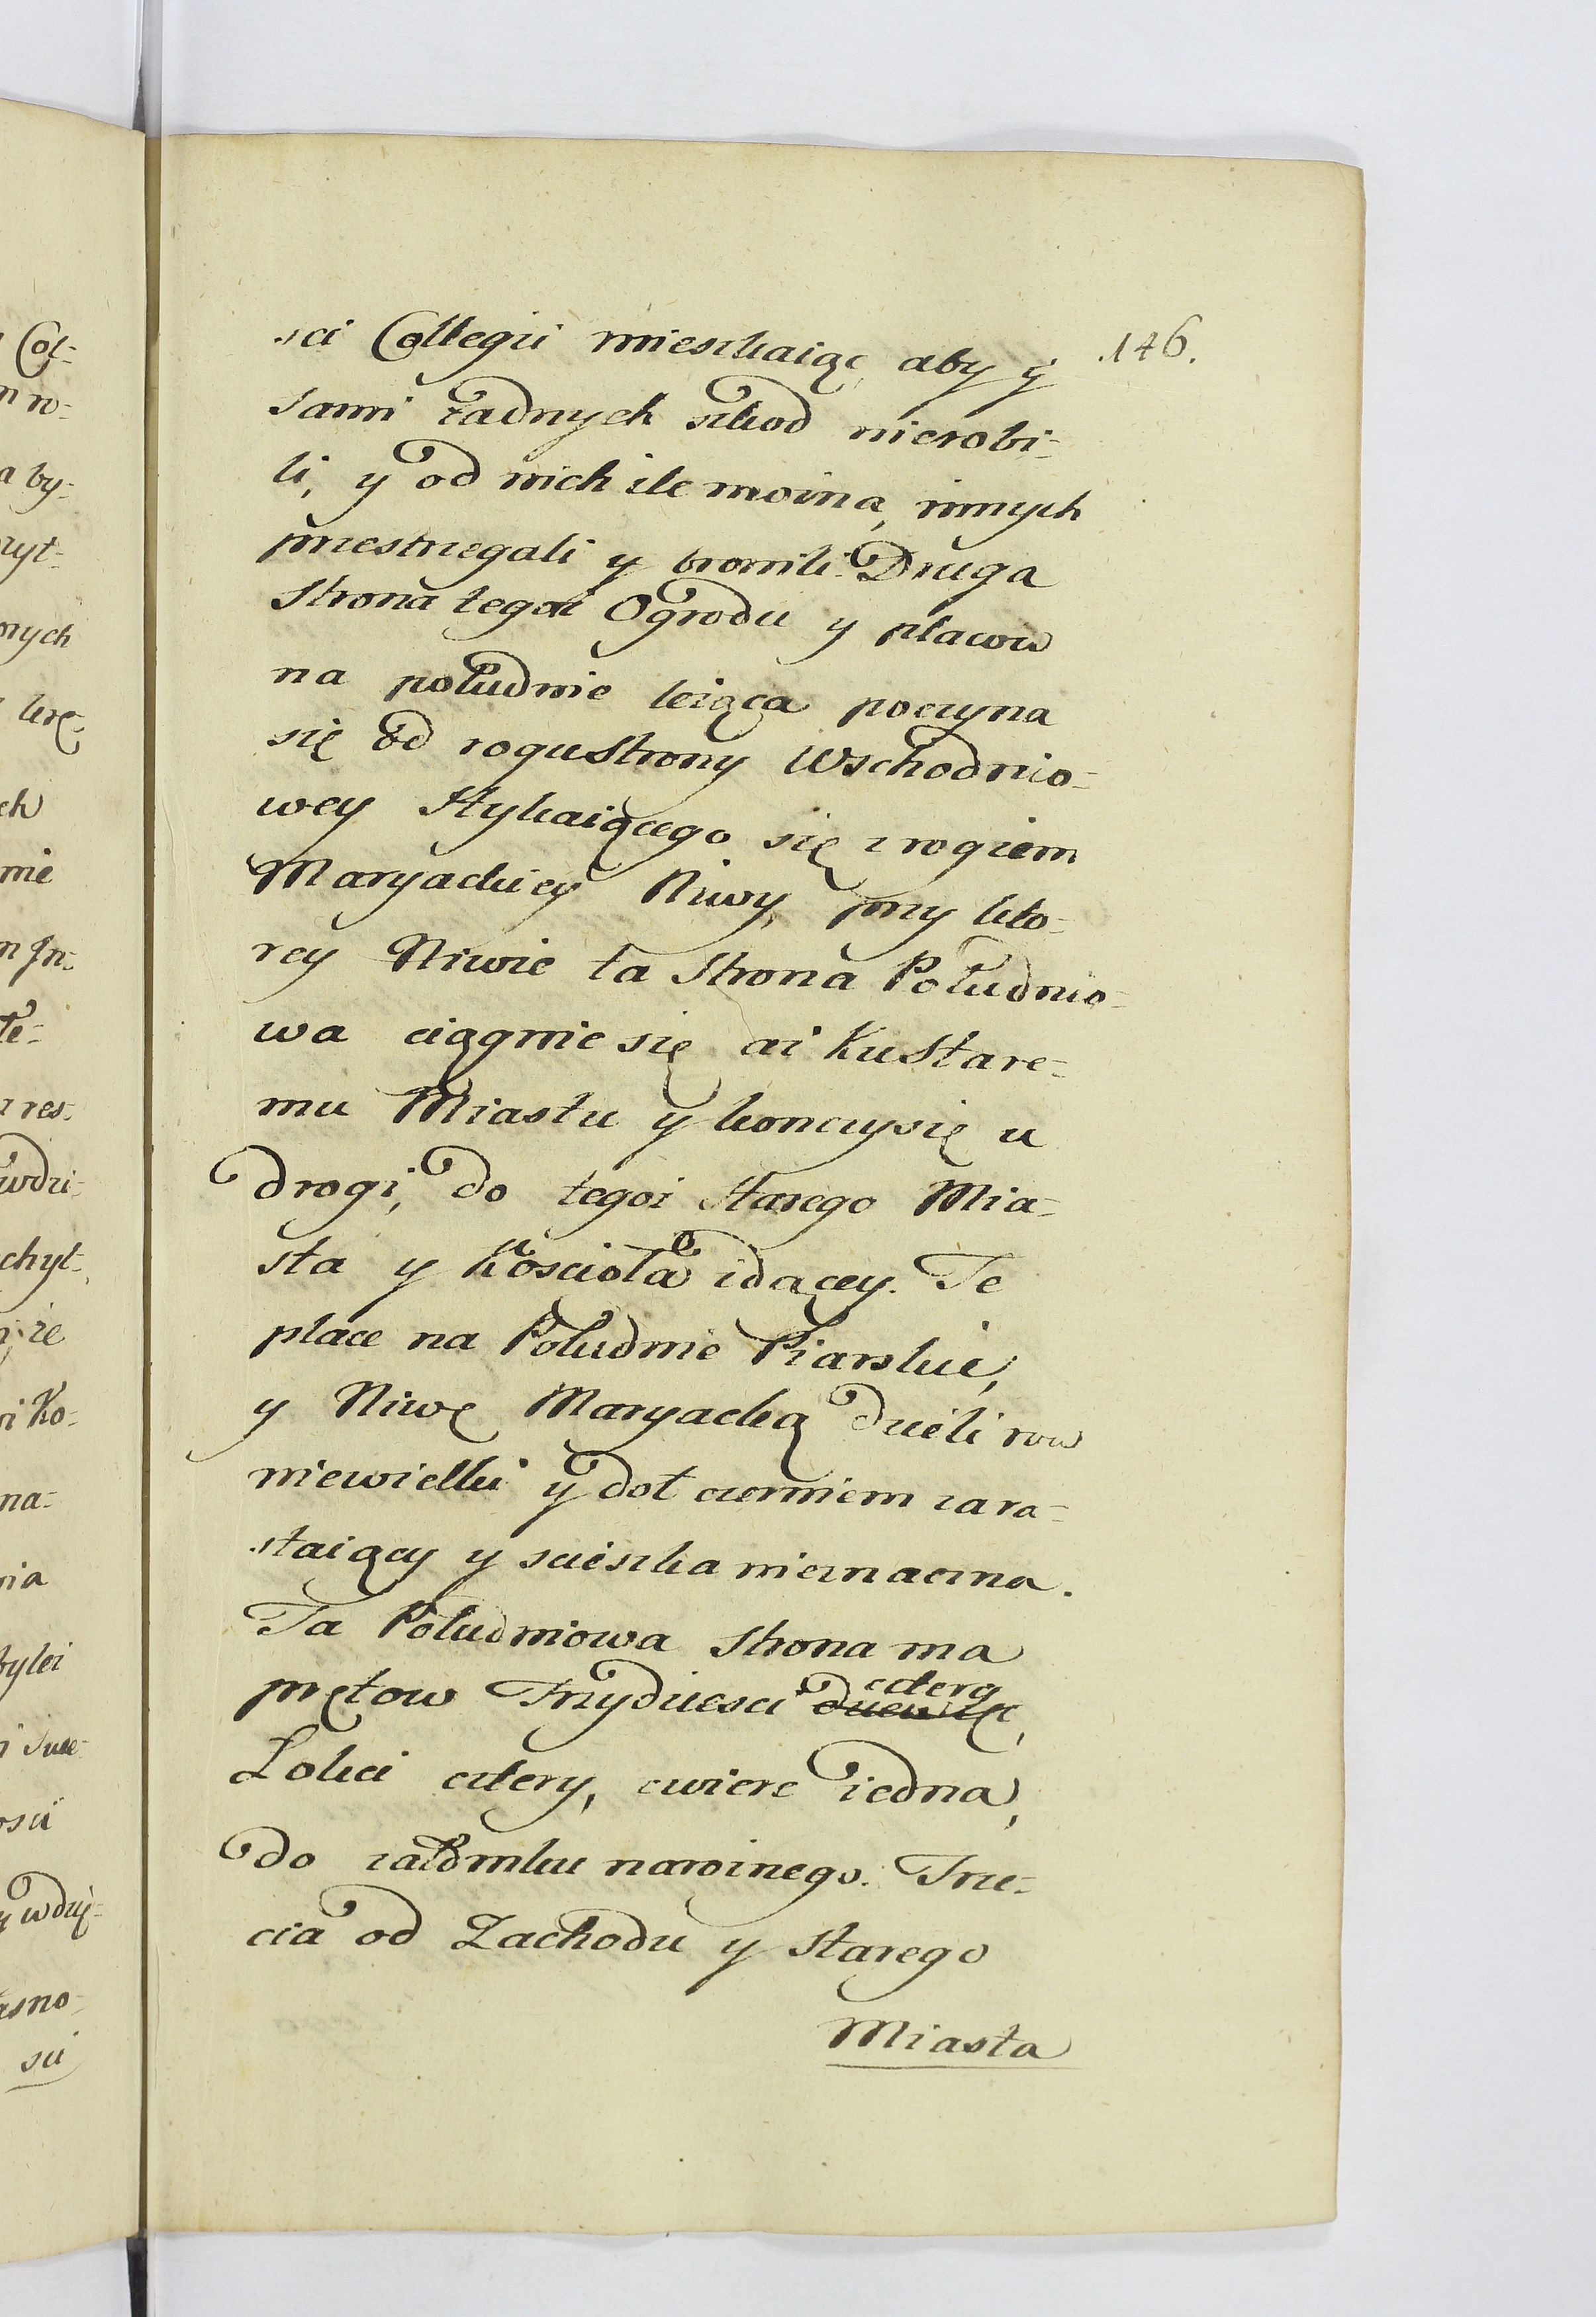 146.
sci Collegii mieszkaiąc, aby y
sami żadnych szkod nierobi-
li, y od nich ile możną, innych
przestrzegali y bronili. Druga
strona tegoż Ogrodu y placow
na południe leżąca poczyna
się od rogu strony Wschodnio-
wey stykaiącego się z rogiem
Maryackiey Niwy, przy kto-
rey Niwie ta strona Południo-
wa ciągnie się aż ku stare-
mu Miastu y konczy się u
drogi, do tegoż starego Mia-
sta y Kościoła idącey. Te
place na Południe Piarskie,
y Niwę Maryacką dzieli row
niewielki y doł cierniem zara-
staiący y scieszka nieznaczna.
Ta Południowa strona ma
prętow Trzydziesci dziewięć
cztery
Łokci cztery, cwierc iedna,
do załomku narożnego. Trze-
cia od Zachodu y starego
Miasta
Col-
a by-
nych
mie
te-
res-
chyl-
że
Ko-
na-
nia
asno-
sci